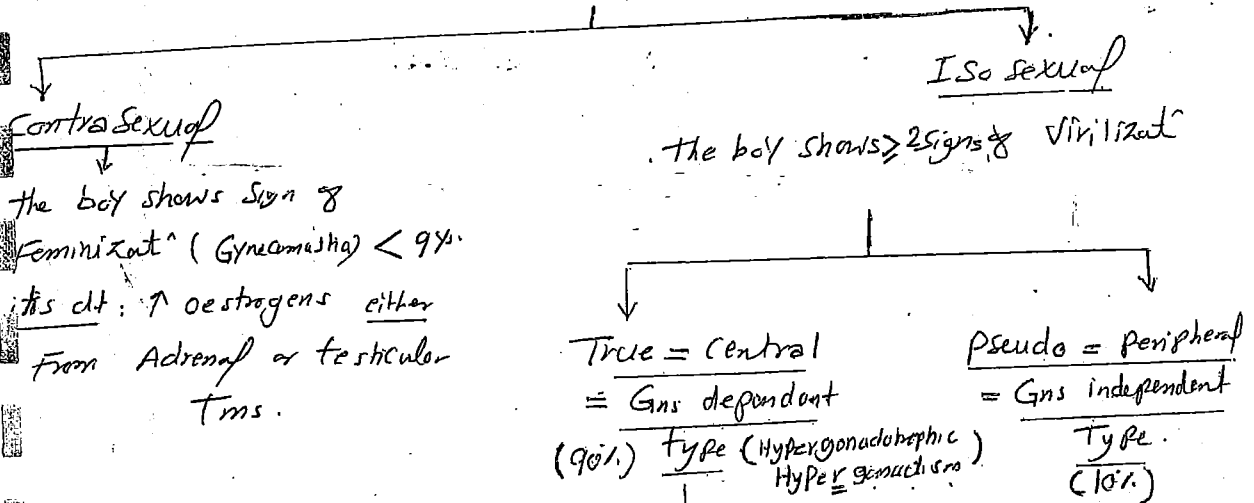 Contrasexual
the boy shows sign of
Feminizat^ (Gynecomastia) < 9 ys.
it's d.t : ↑ oestrogens either
From Adrenal or testicular
Tms.
Iso sexual
the boy shows ≥ 2 signs of Virilizat^
True = Central
= Gns dependant
(90%) type (Hypergonadotrophic
Hypergonadism)
Pseudo = Peripheral
= Gns independent
Type.
(10%)